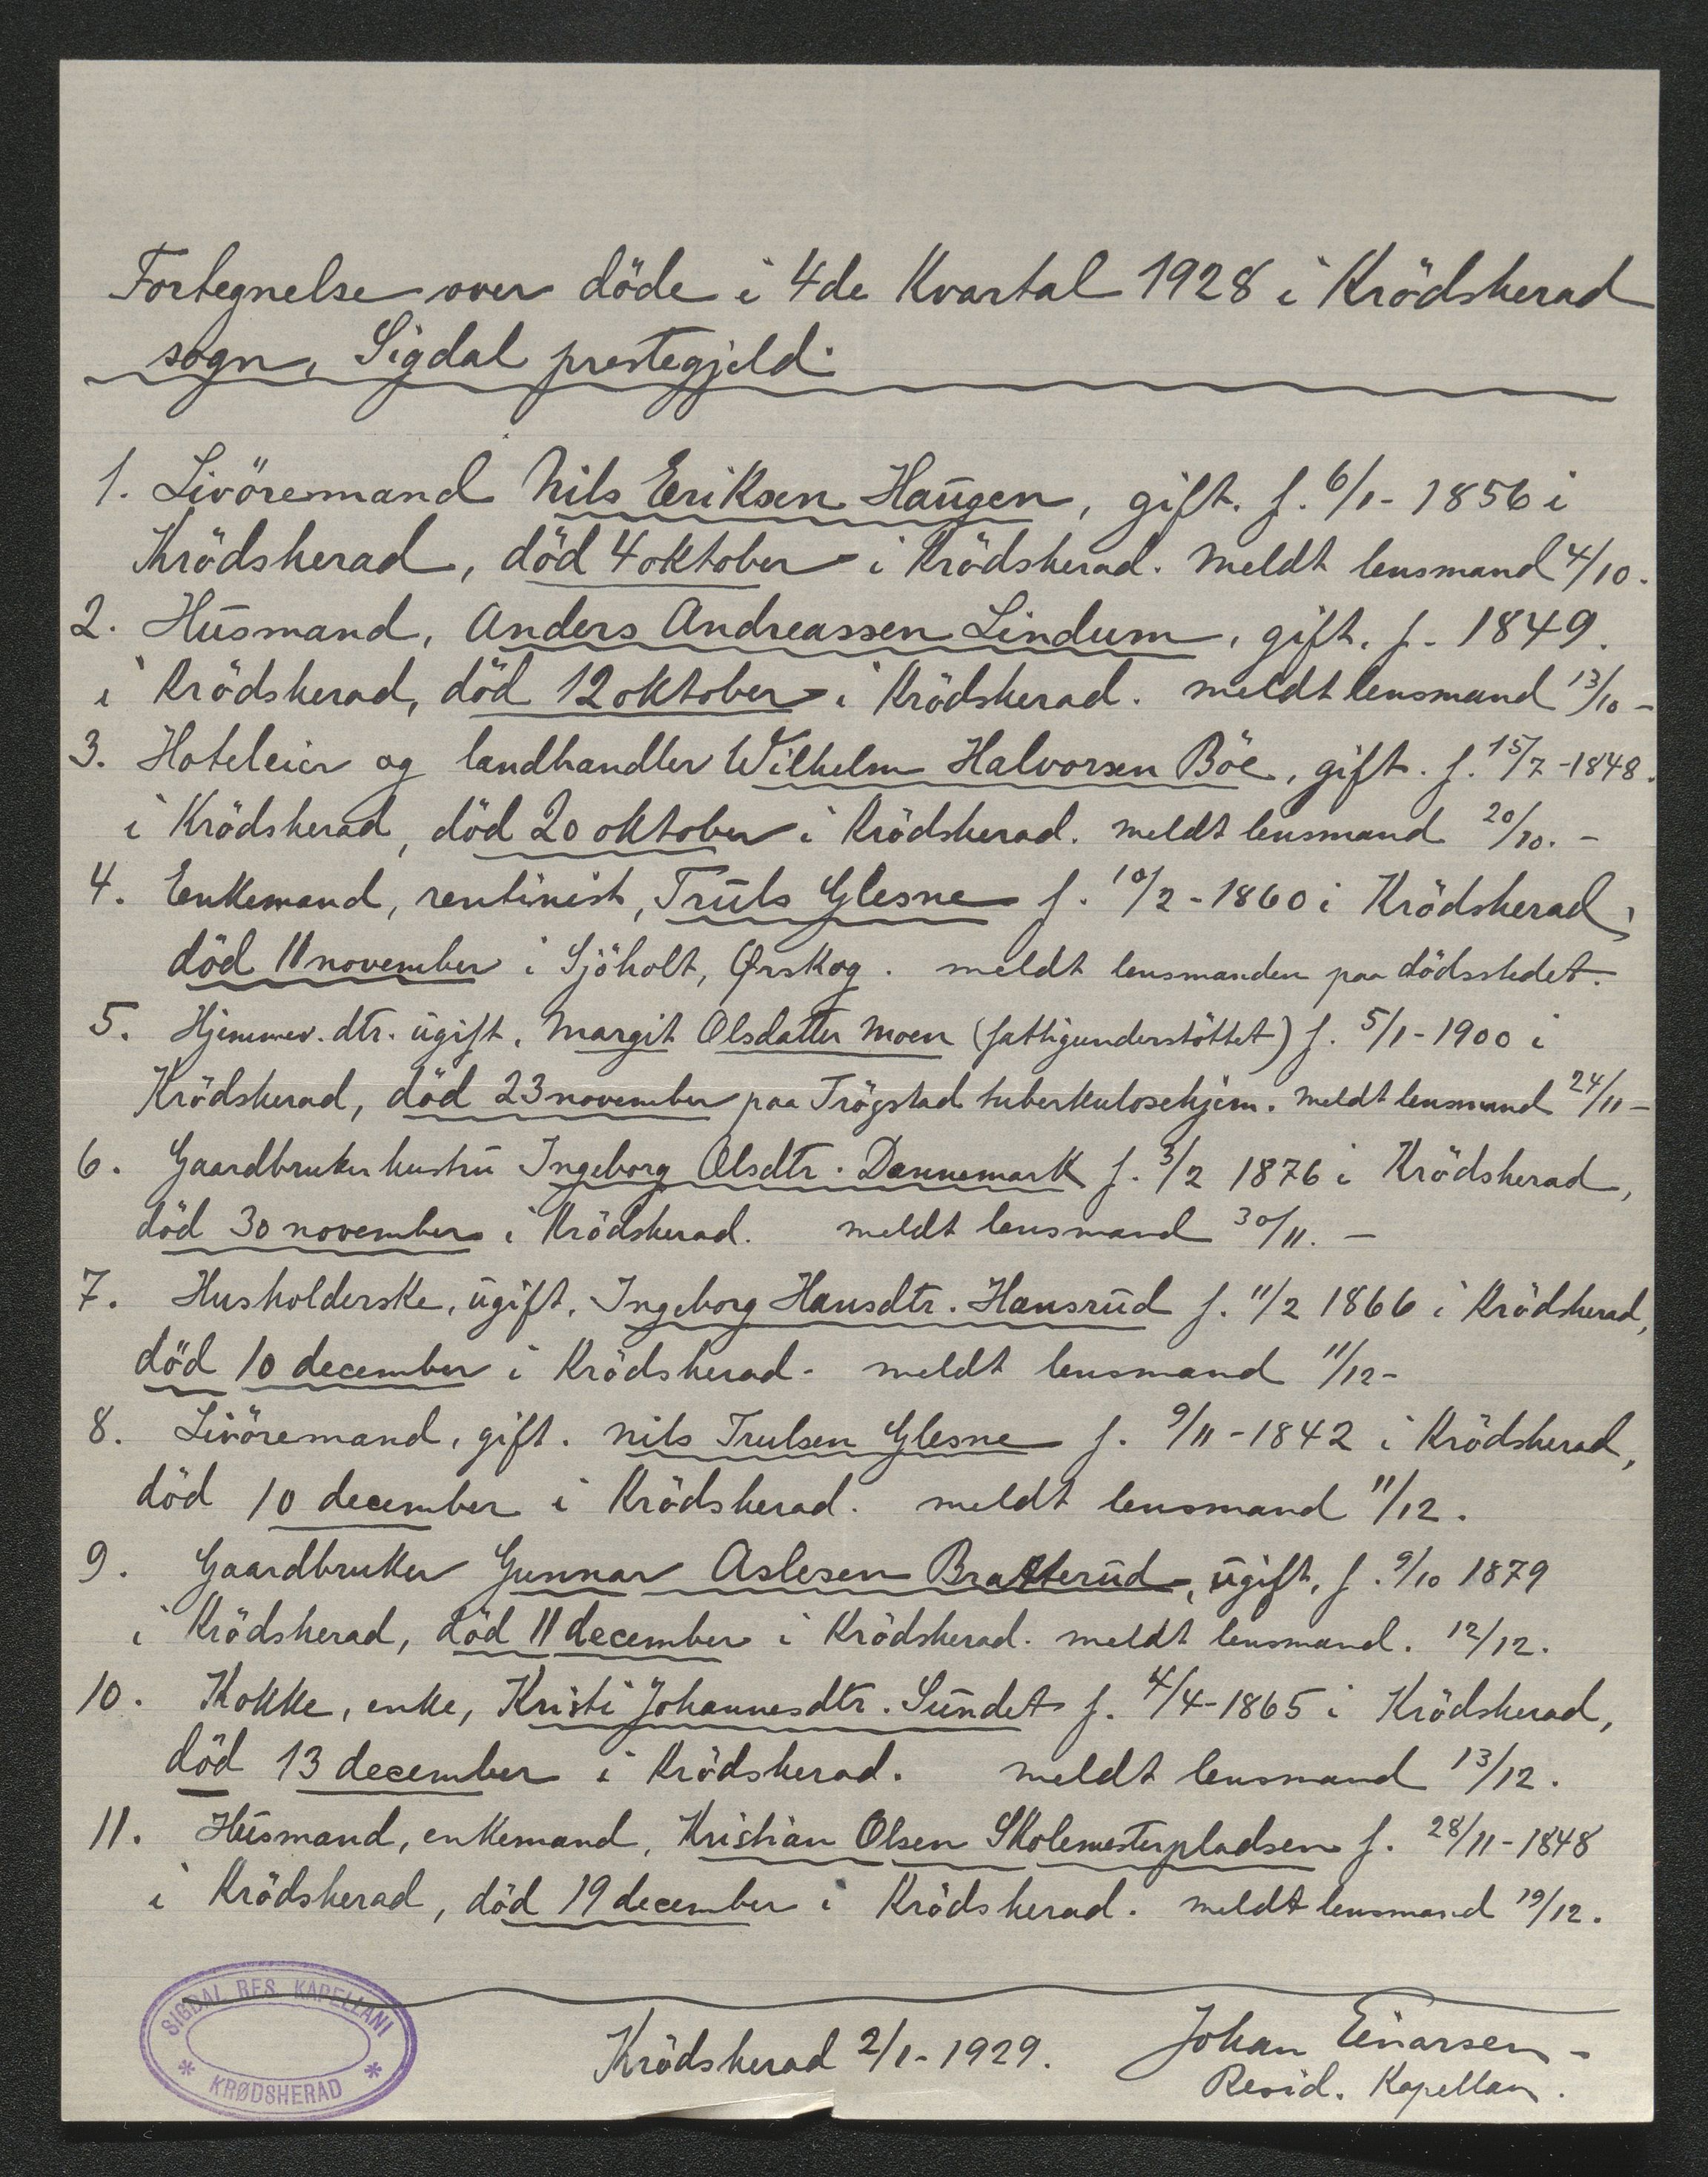 Fortegnelse over döde i 4de Kvartal 1928 i Krödsherad
sogn, Sigdal prestegjeld.
1. Livöremand Nils Eriksen Haugen, gift. f. 6/1- 1856 i
Krödsherad, död 4 oktober i Krödsherad. meldt lensmand 4/10.
2. Husmand, Anders Andreassen Lindum, gift. f. 1849.
i Krödsherad, död 12 oktober i Krödsherad. meldt lensmand 13/10 -
3. Hoteleier og landhandler Wilhelm Halvorsen Böe, gift. f. 15/7 -1848.
i Krödsherad, död 20 oktober i Krödsherad. meldt lensmand 20/10. -
4. Enkemand, rentinist, Truls Glesne f. 10/2 - 1860 i Krödsherad,
död 11 november i Sjöholt, Ørskog. meldt lensmanden paa dödsstedet.
5. Hjemmev. dtr. ugift, Margit Olsdatter Moen (fattigunderstöttet) f. 5/1 - 1900 i
Krödsherad, död 23 november paa Trögstad tuberkulosehjem. meldt lensmand 24/11 -
6. Gaardbruker hustru Ingeborg Olsdtr. Dannemark f. 3/2 1876 i Krödsherad,
död 30 november i Krödsherad. meldt lensmand 30/11. -
7. Husholderske, ugift, Ingeborg Hansdtr. Hansrud f. 11/2 1866 i Krödsherad,
död 10 december i Krödsherad - meldt lensmand 11/12 -
8. Livöremand, gift. Nils Trulsen Glesne f. 9/11 - 1842 i Krödsherad,
död 10 december i Krödsherad. meldt lensmand 11/12.
9. Gaardbruker Gunnar Aslesen Bratterud, ugift, f. 9/10 1879
i Krödsherad, död 11 december i Krödsherad. meldt lensmand. 12/12.
10. Kokke, enke, Kristi Johannesdtr. Sundet f. 4/4 - 1865 i Krödsherad,
död 13 december i Krödsherad. meldt lensmand 13/12.
11. Husmand, enkemand, Kristian Olsen Skolemesterpladsen f. 28/11 - 1848
i Krödsherad, död 19 december i Krödsherad. meldt lensmand 19/12.
SIGDAL RES. KAPELLANI
* KRØDSHERAD *
Krödsherad 2/1 - 1929. Johan Einarsen -
Resid. Kapellan.